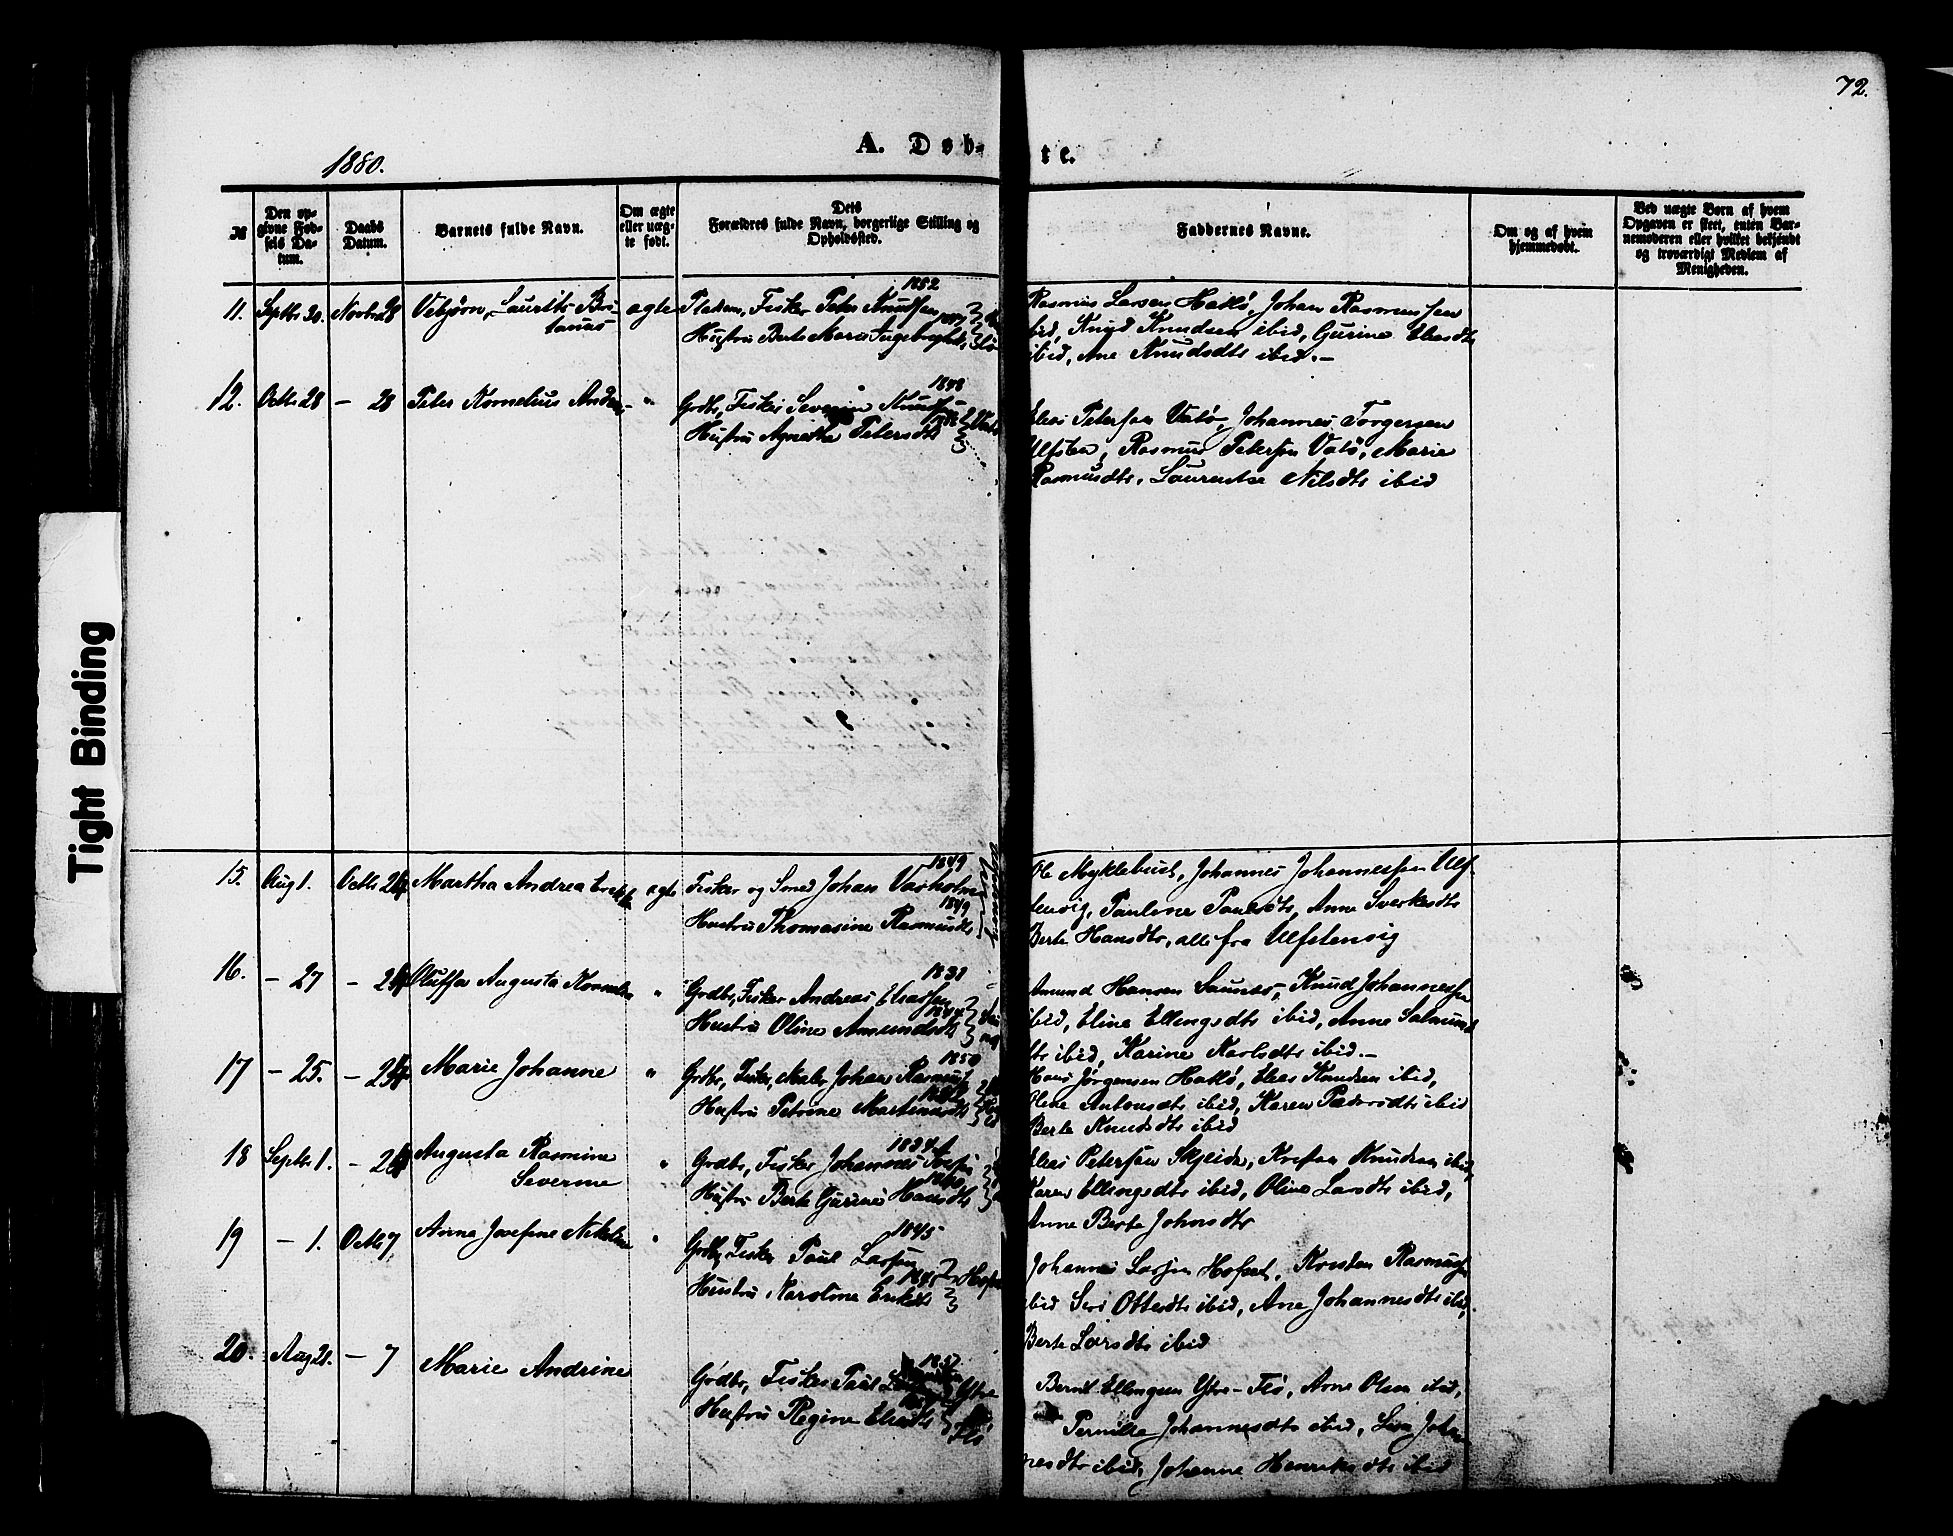 72.
1880.
A. Døb-
te.
№
Den op-
givne Fød-
sels Da-
tum.
Daabs
Datum.
Barnets fulde Navn.
Om ægte
eller uæg-
te født.
Dets
Forældres fulde Navn, borgerlige Stilling og
Opholdssted.
Faddernes Navne.
Om og af hvem
hjemmedøbt.
Ved uægte Børn af hvem
Opgaven er skeet, enten Bar-
nemoderen eller hvilket bekjendt
og troværdigt Medlem af
Menigheden.
11. Septbr 30. Novbr 28 Vebjørn, Laurits Bri-
tanus
ægte
1852
Pladsm, Fisker Peter Knudsen
Hustru Berte Marie Ingebrigtsdtr
Rasmus Larsen Hatlø, Johan Rasmussen
ibid, Knud Knudsen ibid, Gurine Eleasdtr
ibid, Ane Knudsdtr ibid.-
12. Octbr 28 - 28 Peter Kornelius Andr
"
1848
Grdbr, Fisker Severin Knudsen
Hustru Agnethe Petersdtr
Eleas Petersen Vatø, Johannes Torgersen
Ulfsten, Rasmus Petersen Vatø, Marie
Rasmusdtr, Laurentse Nilsdtr ibid
15. Aug 1. Octbr 24 Martha Andrea
ægte
1849
Fisker og Smed Johan Vasholm
1849
Hustru Thomasine Rasmusdtr
Ole Myklebust, Johannes Johannessen Ulf-
stenvig, Pauline Paulsdtr, Anne Sverkesdtr
Berte Hansdtr, alle fra Ulfstenvig
16. - 27 - 24 Oluffa Augusta Kornelia
"
Grdbr, Fisker Andreas Eleassen
Hustru Oline Amundsdtr
Amund Hansen Saunes, Knud Johannessen
ibid, Eline Ellingsdtr ibid, Anne Salmunds
dtr ibid, Karine Karlsdtr ibid.-
17 - 25. - 24 Marie Johanne
"
1850
Grdbr, Fisker, Maler Johan Rasmus
Hustru Petrine Martinusdtr
Hans Jørgensen Hatlø, Eleas Knudsen ibid,
Oline Antonsdtr ibid, Karen Pedersdtr ibid
Berte Knudsdtr ibid
18 Septbr 1. - 24 Augusta Rasmine
Severine
"
1834
Grdbr, Fisker Johannes
Hustru Berte Gurine Hansdtr
Eleas Petersen Skjeide, Kristen Knudsen ibid,
Karen Ellingsdtr ibid, Oline Larsdtr ibid,
Anne Berte Johnsdtr
19 - 1. Octbr 7, Anna Josefine Nikoline
"
1845
Grdbr, Fisker Paul Larsen
Hustru Karoline Eriksdtr
Johannes Larsen Hofset, Kristen Rasmussen
ibid Siri Ottesdtr ibid, Ane Johannesdtr ibid,
Berte Larsdtr ibid
20. Aug 21. - 7 Marie Andrine
1857
Grdbr, Fisker Paul
Hustru Regine Eleasdtr
Ytre
Flø
Bernt Ellingsen Ytre-Flø, Arne Olsen ibid,
Pernille Johannesdtr ibid, Lisa Johan-
nesdtr ibid, Johanne Henriksdtr ibid
Tight Binding